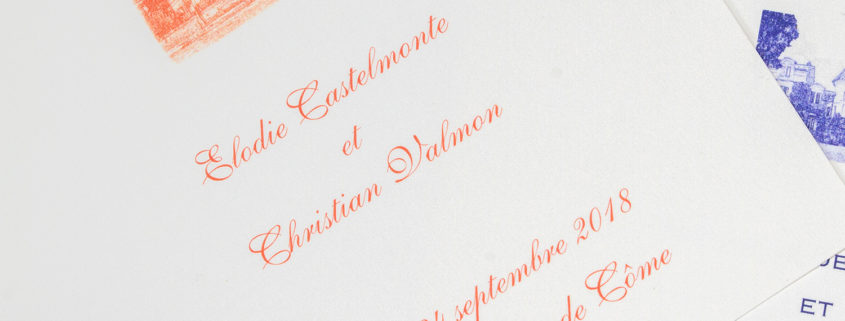 Elodie Castelmonte
et
Christian Valmon
septembre 2018
de Côme
ET